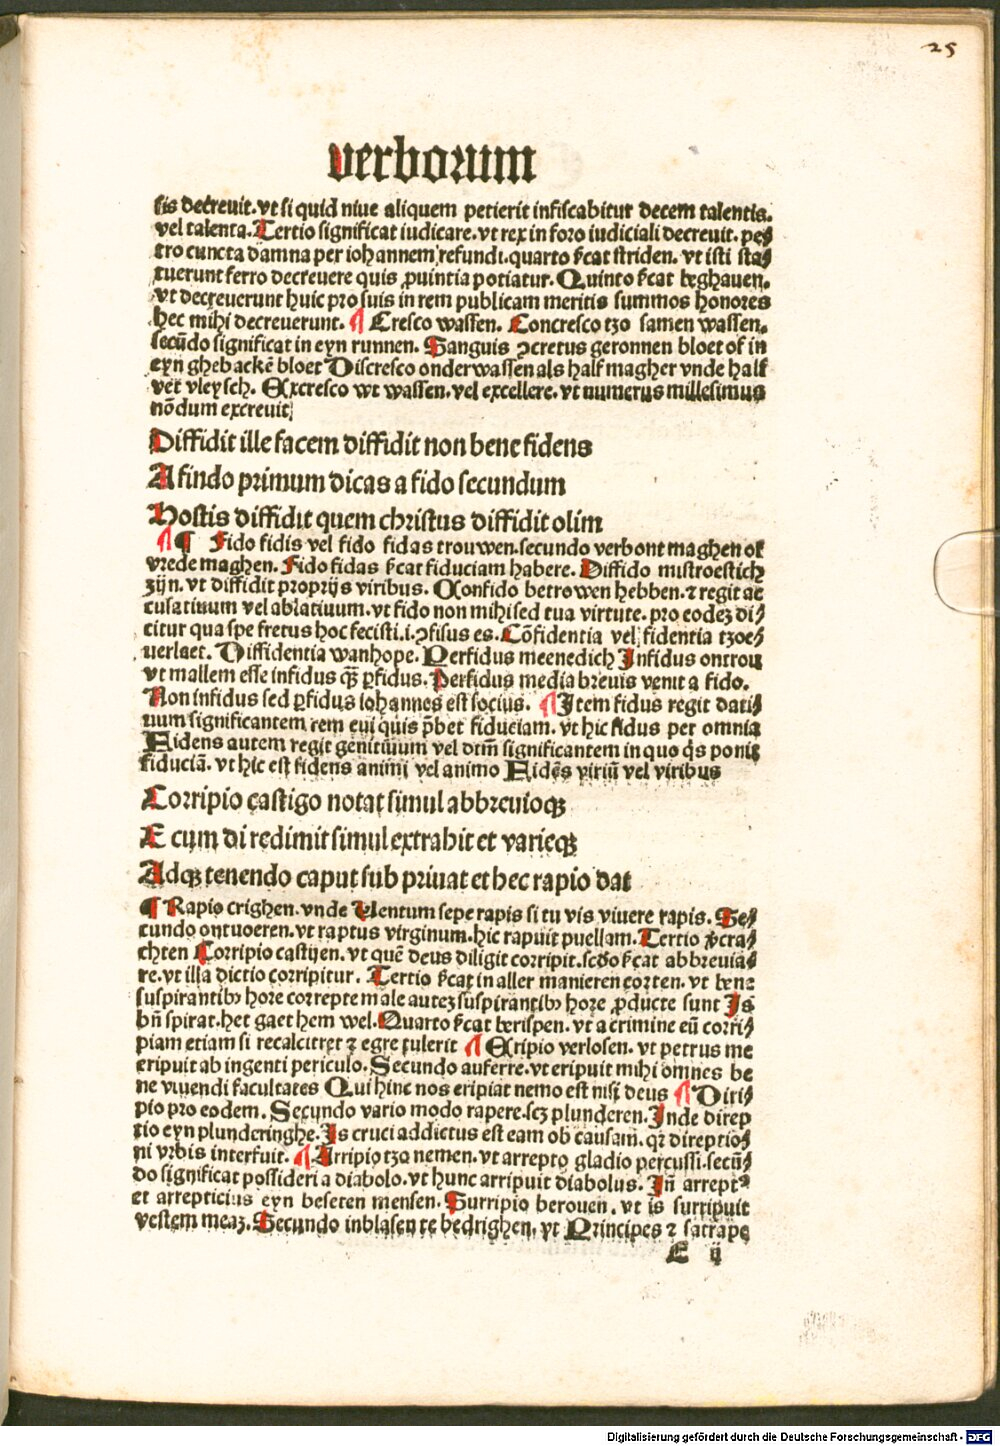 25
verborum
sis decreuit. vt si quid niue aliquem petierit infiscabitur decem talentis.
vel talenta. Tertio significat iudicare. vt rex in foro iudiciali decreuit. pe⸗
tro cuncta damna per iohannem refundi. quarto ſ̄cat striden. vt isti sta⸗
tuerunt ferro decreuere quis ꝓuintia potiatur. Quinto ſ̄cat beghauen.
vt decreuerunt huic pro suis in rem publicam meritis summos honores
hec mihi decreuerunt. ¶ Cresco wassen. Concresco tzo samen wassen.
secūdo significat in eyn runnen. Sanguis ↄcretus geronnen bloet of in
eyn ghebackē bloet Discresco onderwassen als half magher vnde half
vet vleysch. Excresco wt wassen. vel excellere. vt numerus millesimus
nōdum excreuit
Diffidit ille facem diffidit non bene fidens
A findo primum dicas a fido secundum
Hostis diffidit quem christus diffidit olim
¶ ¶ Fido fidis vel fido fidas trouwen. secundo verbont maghen of
vrede maghen. Fido fidas ſ̄cat fiduciam habere. Diffido mistroestich
zijn. vt diffidit proprijs viribus. Confido betrowen hebben. ⁊ regit ac
cusatiuum vel ablatiuum. vt fido non mihi sed tua virtute. pro eodeꝫ di⸗
citur qua spe fretus hoc fecisti. i. ↄfisus es. Cōfidentia vel fidentia tzoe⸗
uerlaet. Diffidentia wanhope. Perfidus meenedich Infidus ontrou
vt mallem esse infidus qȝ̄ ꝑfidus. Perfidus media breuis venit a fido.
Non infidus sed ꝑfidus iohannes est socius. ¶ Item fidus regit dati⸗
uum significantem rem cui quis p̄bet fiduciam. vt hic fidus per omnia
Fidens autem regit genitiuum vel dtm̄ significantem in quo q̄s ponit
fiduciā. vt hic est fidens animi vel animo Fidēs viriū vel viribus
Corripio castigo notat simul abbreuioqꝫ
E cum di redimit simul extrahit et varieqꝫ
Adqꝫ tenendo caput sub priuat et hec rapio dat
¶ Rapio crighen. vnde Ventum sepe rapis si tu vis viuere rapis. Se⸗
cundo ontuoeren. vt raptus virginum. hic rapuit puellam. Tertio vcra⸗
chten Corripio castijen. vt quē deus diligit corripit. scḋo ſ̄cat abbreuia⸗
re. vt illa dictio corripitur. Tertio ſ̄cat in aller manieren corten. vt bene
suspirantibꝫ hore correpte male auteꝫ suspirantibꝫ hore ꝓducte sunt Is
bn̄ spirat. het gaet hem wel. Quarto ſ̄cat berispen. vt a crimine eū corri⸗
piam etiam si recalcitret ⁊ egre tulerit ¶ Eripio verlosen. vt petrus me
eripuit ab ingenti periculo. Secundo auferre. vt eripuit mihi omnes be
ne viuendi facultates Qui hinc nos eripiat nemo est nisi deus ¶ Diri⸗
pio pro eodem. Secundo vario modo rapere. scꝫ plunderen. Inde direp
tio eyn plunderinghe. Is cruci addictus est eam ob causam. qꝛ direptio⸗
ni vrbis interfuit. ¶ Arripio tzo nemen. vt arrepto gladio percussi. secū⸗
do significat possideri a diabolo. vt hunc arripuit diabolus. In̄ arreptꝰ
et arrepticius eyn beseten mensen. Surripio berouen. vt is surripuit
vestem meaꝫ. Secundo inblasen te bedrighen. vt Principes ⁊ satrape
E ij
Digitalisierung gefördert durch die Deutsche Forschungsgemeinschaft - DFG